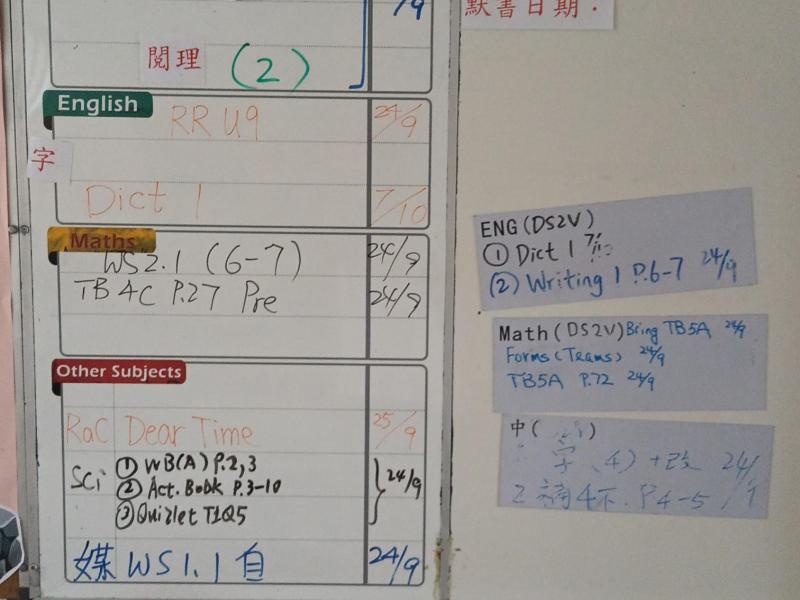 /9
閱理 (2)
默書日期.
English
RR U9 24/9
字
Dict 1 7/10
Maths
WS2.1 (6-7) 24/9
TB 4C P.27 Pre 24/9
Other Subjects
RaC Dear Time 25/9
Sci ① WB(A) P.2,3
② Act. Book P.3-10 24/9
③ Quizlet T1Q5
媒 WS1.1 自 24/9
ENG (DS2V)
① Dict 1
(2) Writing 1 P.6-7 24/9
Math (DS2V) Bring TB5A 24/9
Forms (Teams) 24/9
TB5A P.72 24/9
中 ( )
字 (4) +改 24/
2 補4下. P4-5